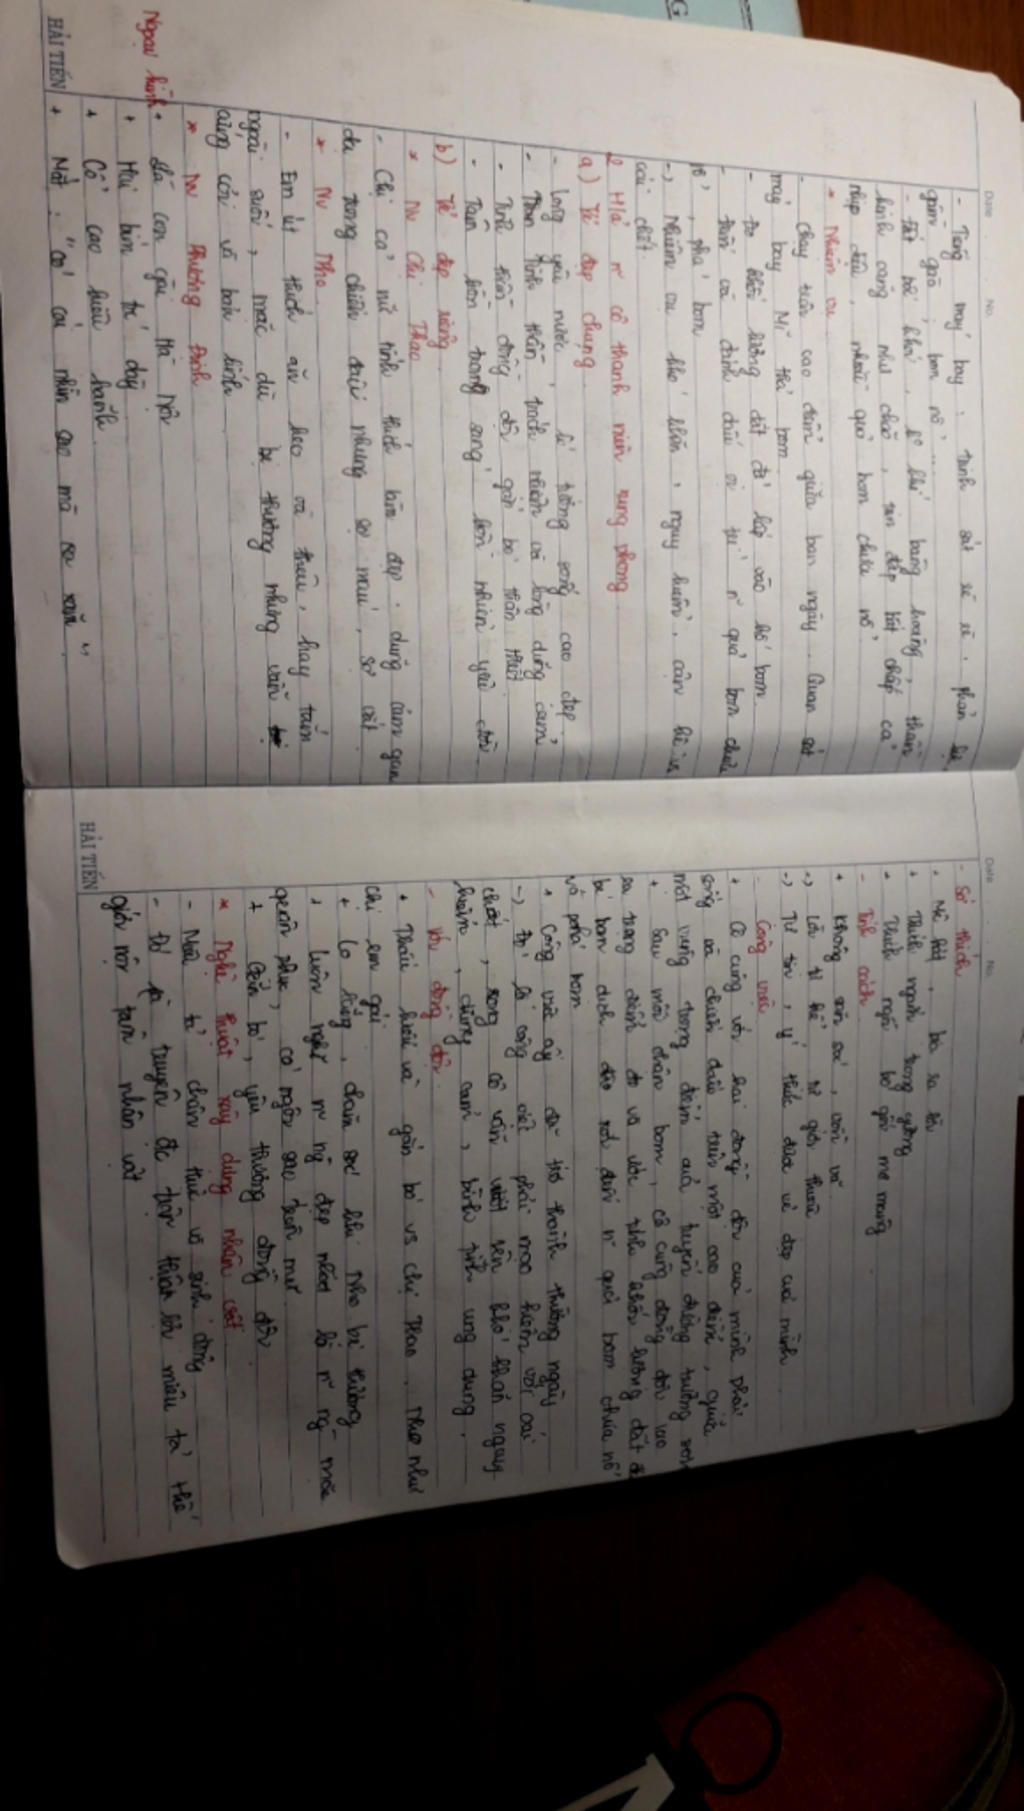 Date No.
- Tiếng máy bay: trinh sát rè rè, phản lực
gầm gào, bom nổ...
- Đất bốc khói, k khí bàng hoàng, thần
kinh căng như chão, tim đập bất chấp cả
nhịp điệu, nhiều quả bom chưa nổ
* Nhiệm vụ
- Chạy trên cao điểm giữa ban ngày. Quan sát
máy bay Mĩ thả bom
- Đo khối lượng đất đá lấp vào hố bom
- Đếm và đánh dấu vị trí n~ quả bom chưa
nổ, phá bom
-> Nhiệm vụ khó khăn, nguy hiểm, cận kề vs
cái chết.
2) H/ả n~ cô thanh niên xung phong
a) Vẻ đẹp chung
- Lòng yêu nước, lí tưởng sống cao đẹp
- Tinh thần trách nhiệm và lòng dũng cảm
- Tình thần đồng đội gắn bó thân thiết
- Tâm hồn trong sáng hồn nhiên yêu đời
b) Vẻ đẹp riêng
* Nv Chị Thao
- Chị cả nữ tính thích làm đẹp, dũng cảm gan
dạ trong chiến đấu nhưng sợ máu, sợ vắt
* Nv Nho
- Em út thích ăn kẹo và thêu, hay tắm
ngoài suối, mặc dù bị thương nhưng vẫn
cứng cỏi và bản lĩnh
* Nv Phương Định
Ngoại hình + Là con gái Hà Nội
+ Hai bím tóc dày
+ Cổ cao kiêu hãnh
+ Mắt: "có cái nhìn sao mà xa xăm"
HẢI TIẾN
Date No.
- Sở thích
+ Mê hát, bịa ra lời
+ Thích ngắm trong gương
+ Thích ngồi bó gối mơ màng
- Tính cách
+ Không săn sóc, vồn vã
-> Lời tự kể tự giới thiệu
-> Tự tin, ý thức đc về vẻ đẹp của mình
- Công việc
+ Cô cùng với hai đồng đội của mình phải
sống và chiến đấu trên một cao điểm, giữa
một vùng trọng điểm của tuyến đường trường sơn
+ Sau mỗi trận bom, cô cùng đồng đội lao
ra trọng điểm đo và ước tính khối lượng đất đá
bị bom địch đào xới đếm n~ quả bom chưa nổ
và phá bom
+ Công việc ấy đã trở thành thường ngày
-> Đó là công việc phải mạo hiểm với cái
chết, song cô vẫn vượt lên khó khăn nguy
hiểm, dũng cảm, bình tĩnh ung dung.
- Với đồng đội
+ Thấu hiểu và gắn bó vs chị Thao, Nho như
chị em gái
+ Lo lắng, chăm sóc khi Nho bị thương
+ Luôn nghĩ n~ ng đẹp nhất là n~ ng mặc
quân phục, có ngôi sao trên mũ
+ Gắn bó, yêu thương đồng đội
* Nghệ thuật xây dựng nhân vật
- Miêu tả chân thực và sinh động
- Đó là truyện đc trần thuật lời miêu tả thế
giới nội tâm nhân vật
HẢI TIẾN